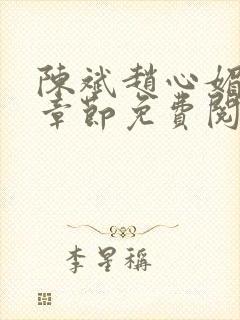 陳斌趙心媚
章節免費閱
李星稱